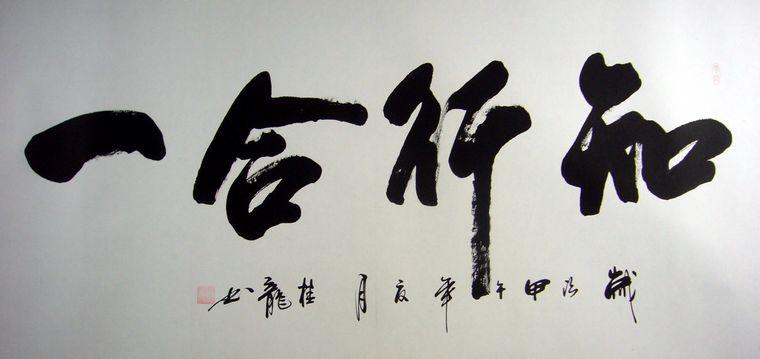 知行合一
歲次甲午年夏月桂龍书